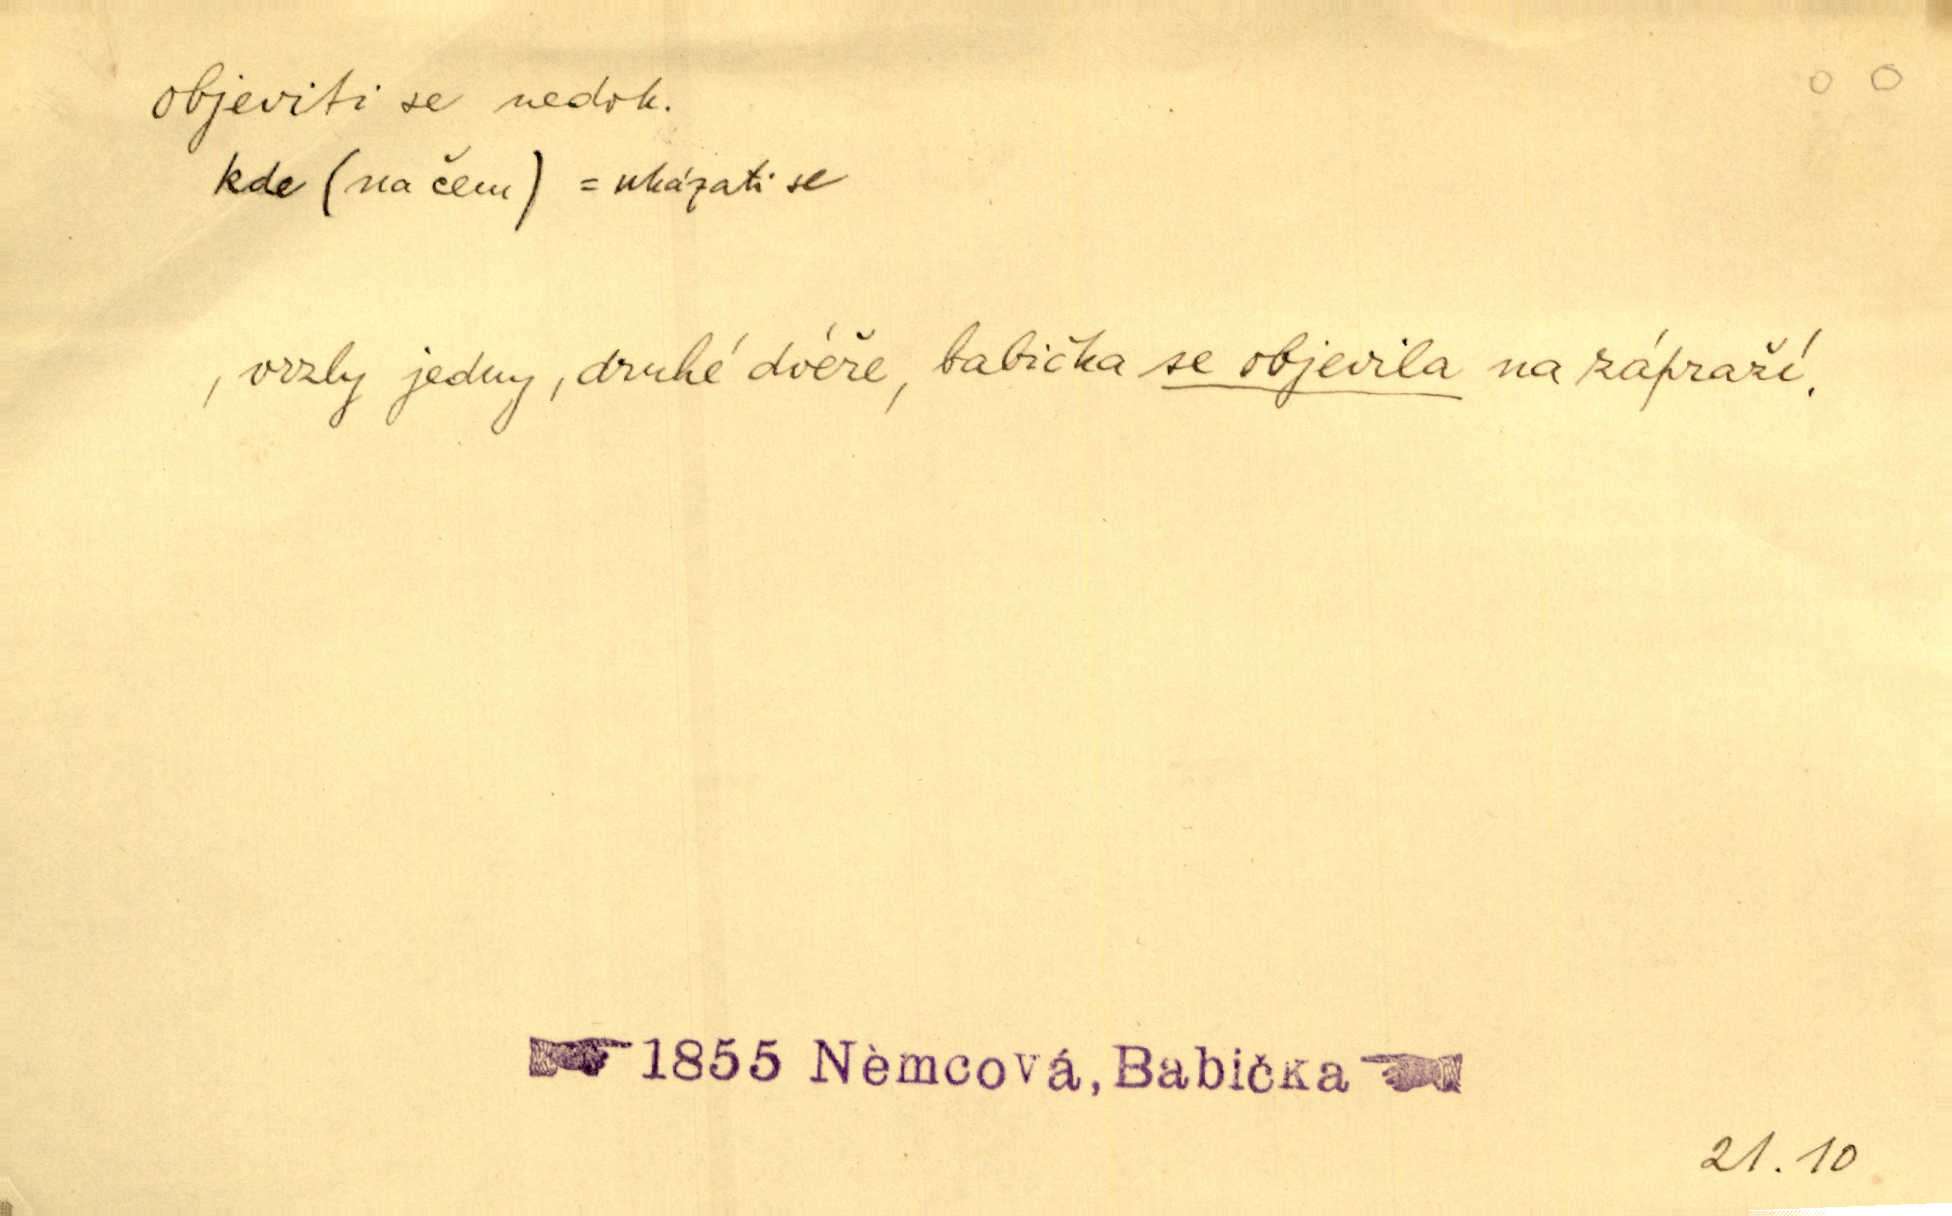 objeviti se nedok.
kde (na čem) = ukázati se
, vrzly jedny, druhé dvéře, babička se objevila na zápraží.
1855 Němcová, Babička
21.10